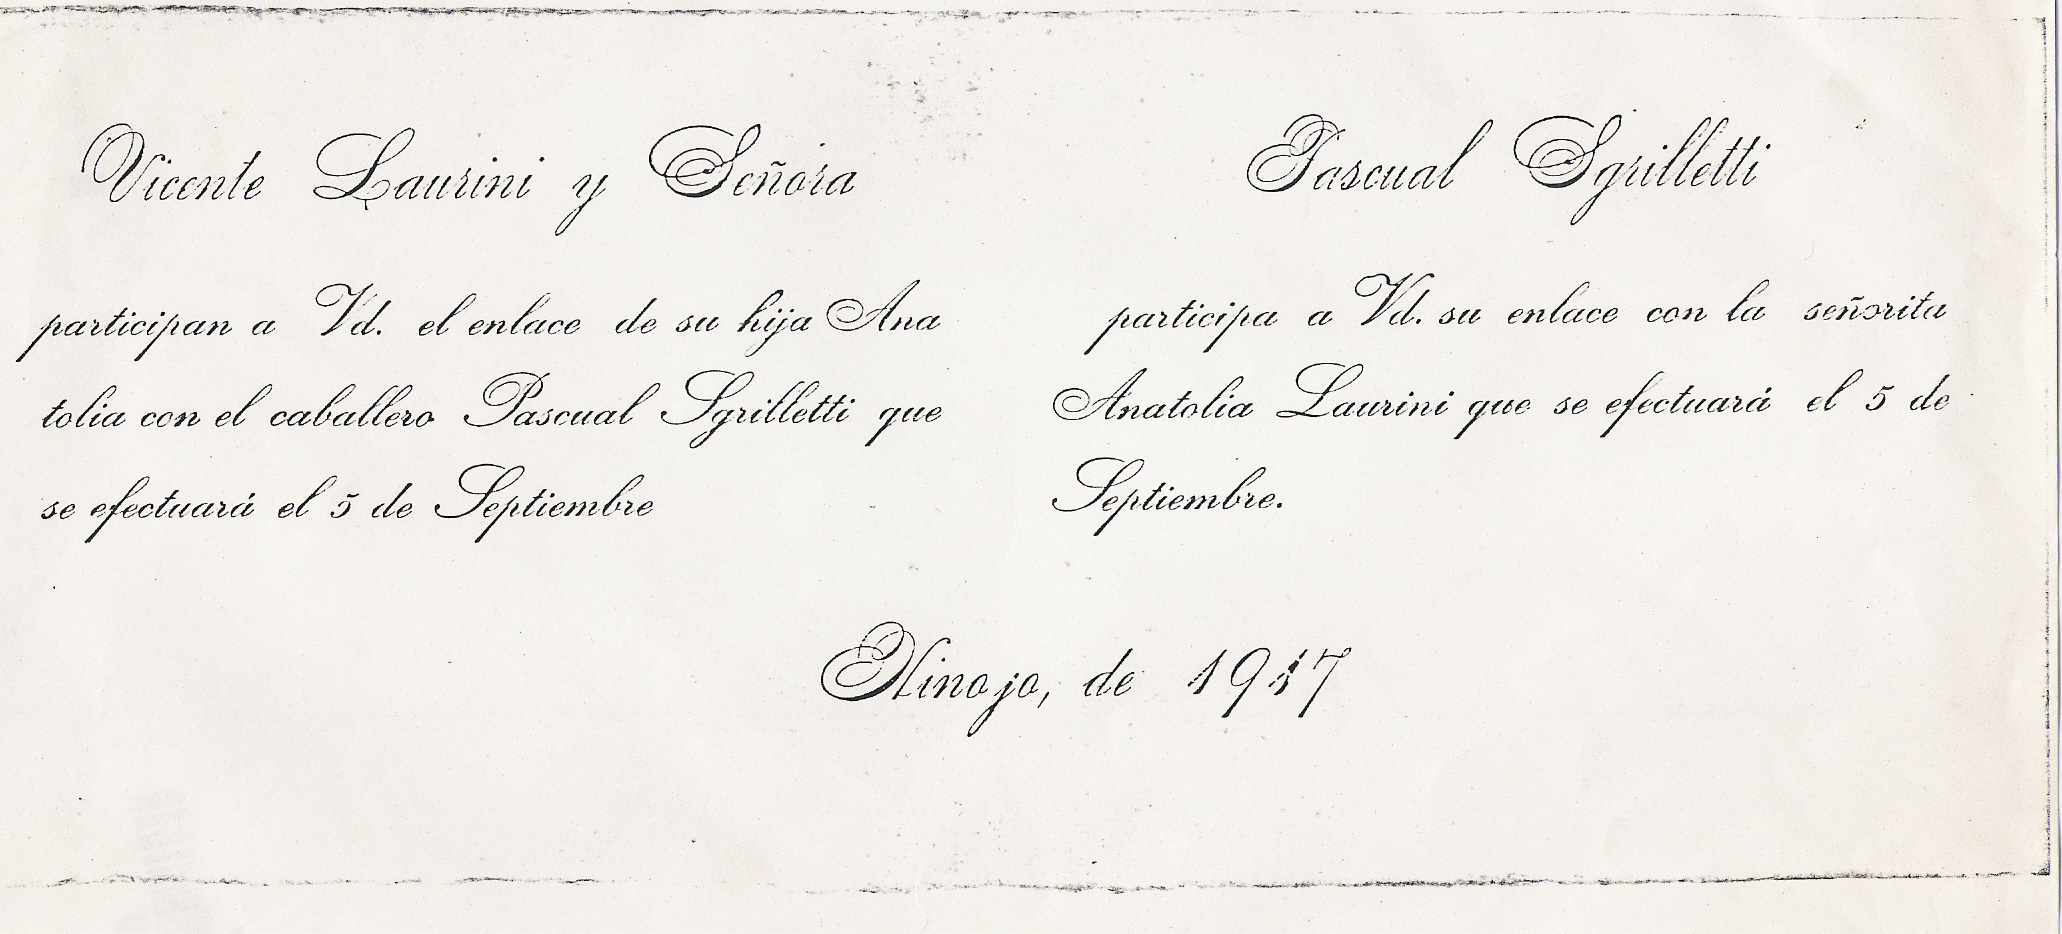 Vicente Laurini y Señora
participan a Vd. el enlace de su hija Ana
tolia con el caballero Pascual Sgrilletti que
se efectuará el 5 de Septiembre
Pascual Sgrilletti
participa a Vd. su enlace con la señorita
Anatolia Laurini que se efectuará el 5 de
Septiembre.
Hinojo, de 1917